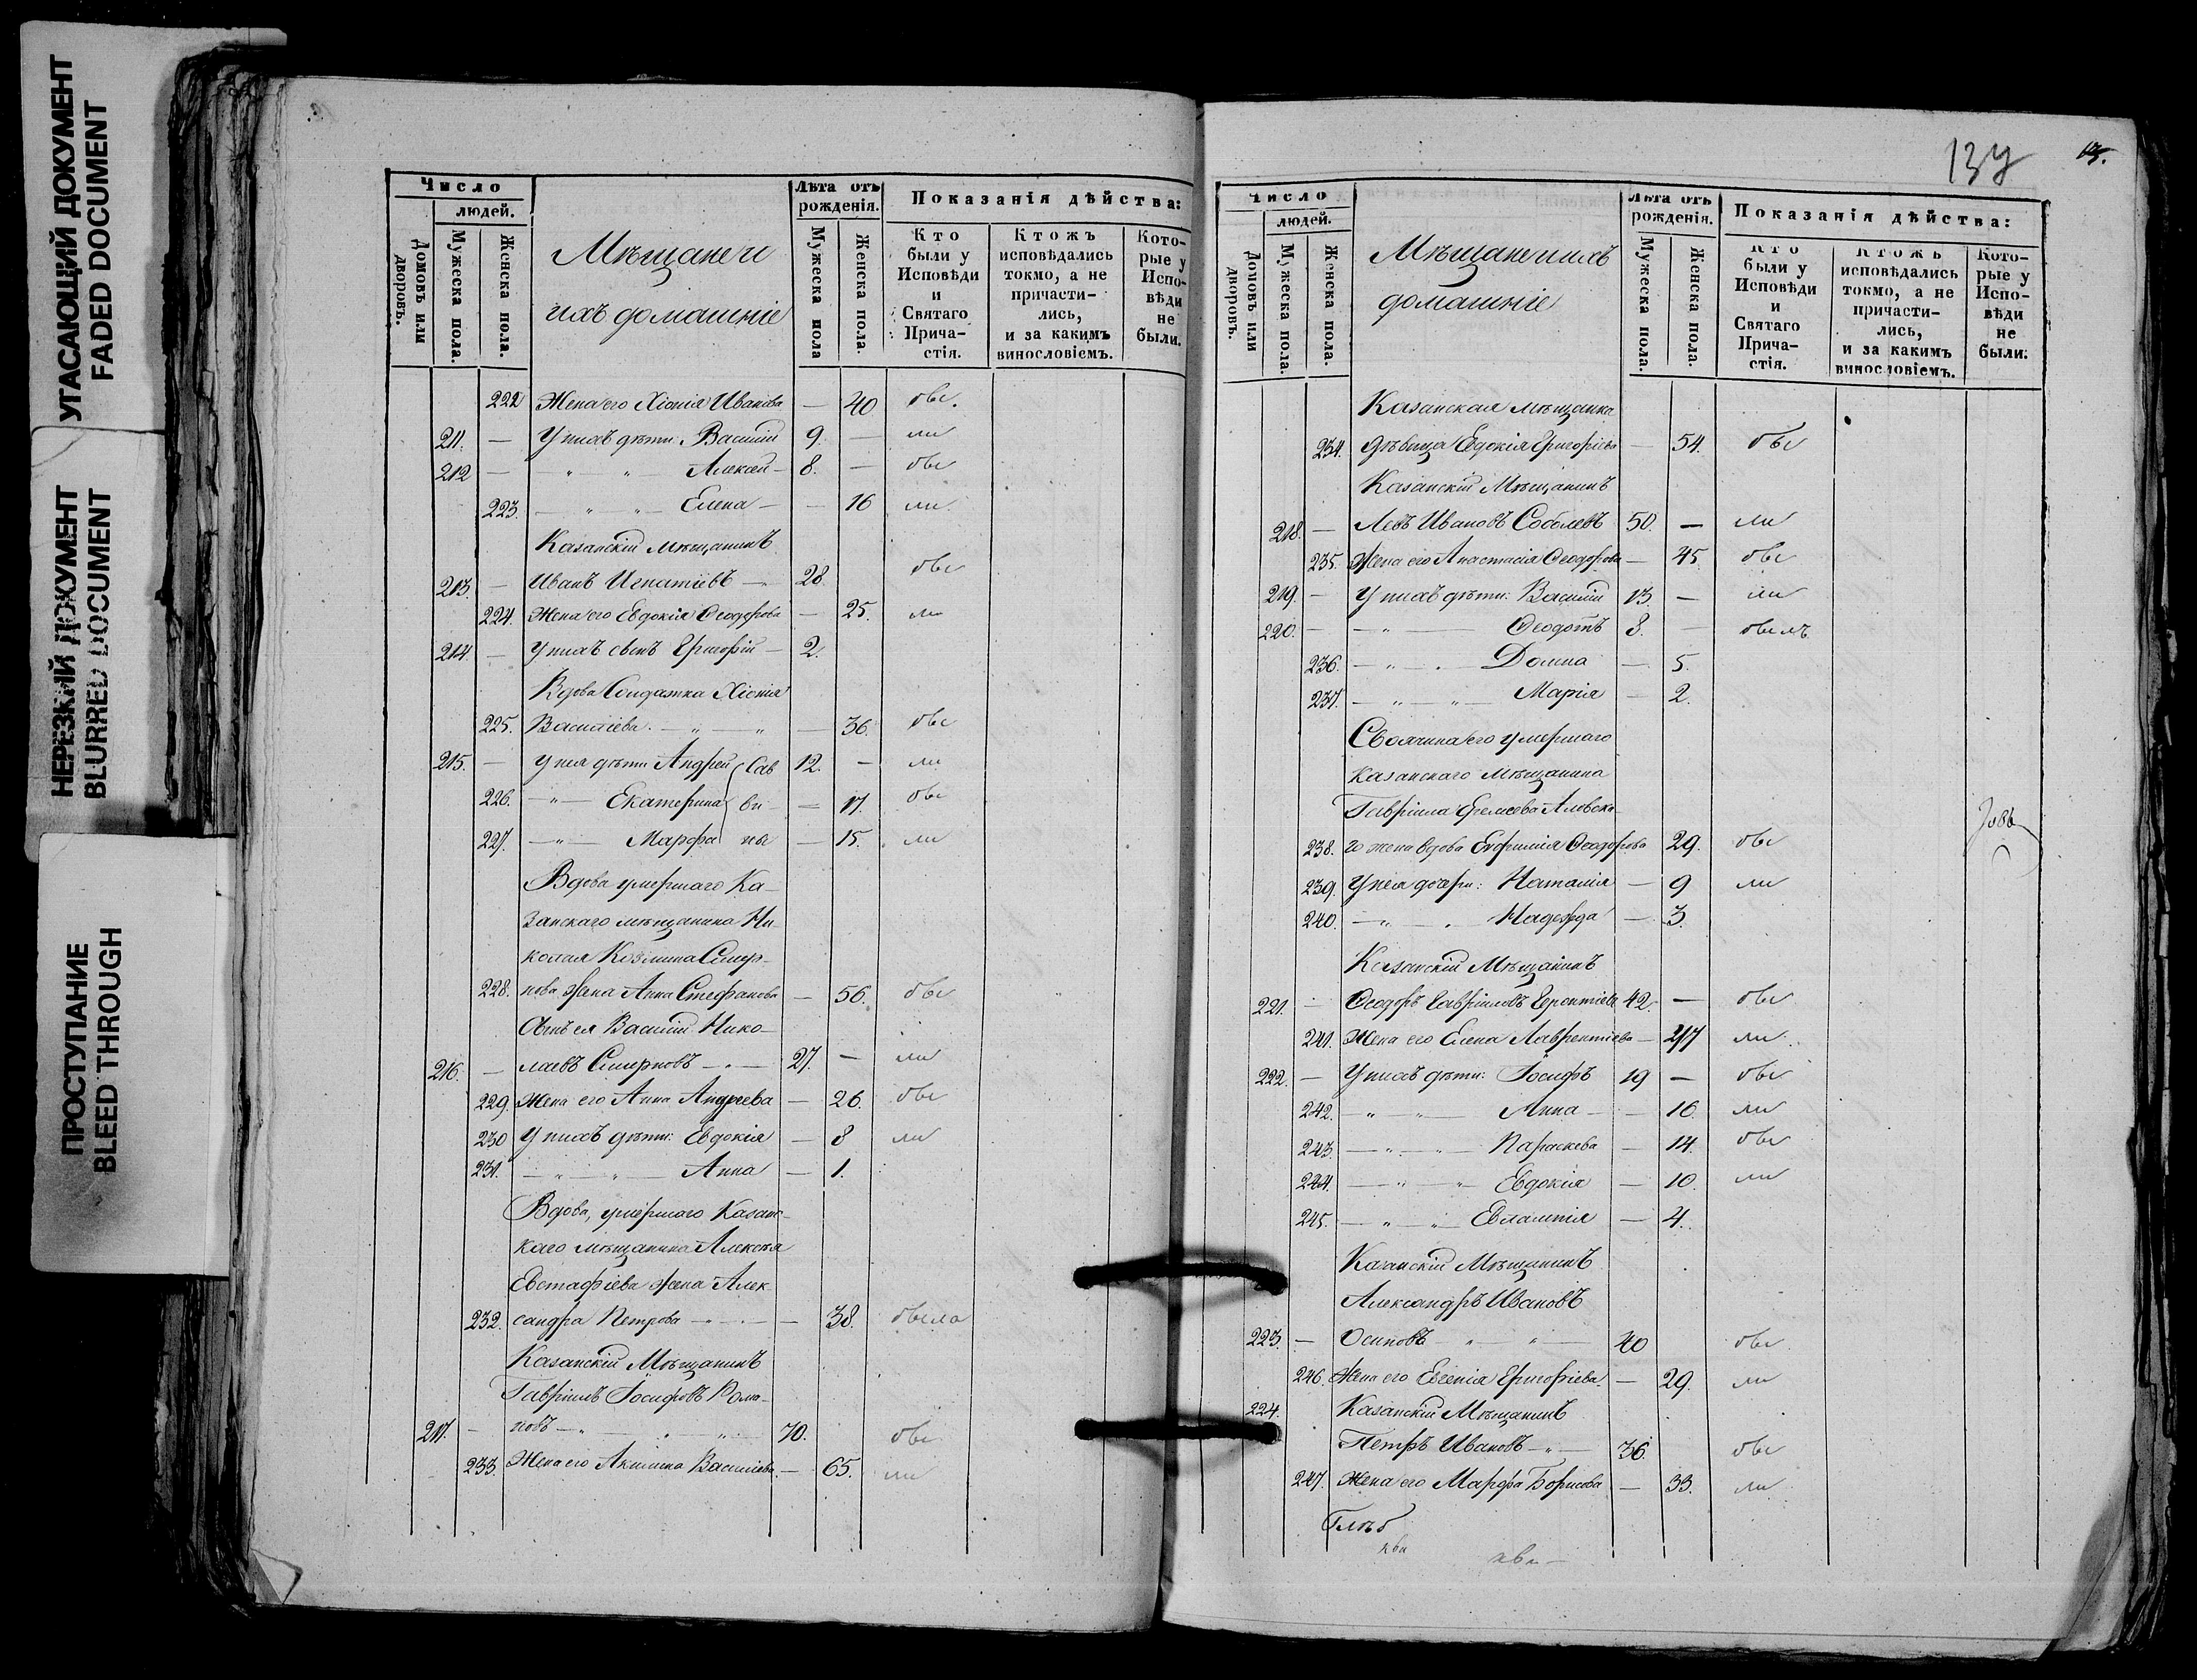 УГАСАЮЩИЙ ДОКУМЕНТ
FADED DOCUMENT
НЕРЕЗКИЙ ДОКУМЕНТ
BLURRED DOCUMENT
ПРОСТУПАНИЕ
BLEED THROUGH
Число
людей.
Домовъ или дворовъ.
Мужеска пола.
Женска пола.
Мѣщане и
ихъ домашніе
Лѣта отъ рожденія.
Мужеска пола
Женска пола.
Показанія дѣйства:
Кто были у Исповѣди и Святаго Прича-стія.
Ктожъ исповѣдались токмо, а не причасти-лись, и за какимъ винословіемъ.
Кото-рые у Испо-вѣди не были.
222 Жена его Хіонія Иванова — 40 бы
211. — У нихъ дѣти: Василій 9. — ли
212 — „ „ Алексей — 8. — бы
223. — „ — „ — Елена — — 16 ли
Казанскій мѣщанинъ
213. — Иванъ Игнатіевъ — 28 бы
224. Жена его Евдокія Ѳеодорова — 25. ли
214. — У нихъ сынъ Григорій — 2.
Вдова Солдатка Хіонія
225. Василіева. — „ — „ — 36. бы
215. — У нея дѣти Андрей Сав 12. — ли
226. — „ — Екатерина ви- — 17. бы
227. — „ — Марфа ны — 15. ли
Вдова умершаго Ка-
занскаго мѣщанина Ни-
колая Козмина Смир-
228. нова жена Анна Стефанова — 56. бы
Сынъ ея Василій Нико-
216. — лаевъ Смирновъ — „ — 27. — ли
229. Жена его Анна Андреева — 26. бы
230 У нихъ дѣти: Евдокія — 8 ли
231. — „ — „ — Анна — 1.
Вдова, умершаго Казанс-
каго мѣщанина Алексѣя
Евстафіева жена Алек-
232. сандра Петрова — „ — — 38. была
Казанскій Мѣщанинъ
Гавріилъ Іосифовъ Рома-
217. — новъ — „ „ „ 70. бы
233. Жена его Акилина Василіева. — 65. ли
137
13.
Число
людей.
Домовъ или дворовъ.
Мужеска пола.
Женска пола.
Мѣщане и ихъ
домашніе
Лѣта отъ рожденія.
Мужеска пола.
Женска пола.
Показанія дѣйства:
Кто были у Исповѣди и Святаго Прича-стія.
Ктожъ исповѣдались токмо, а не причасти-лись, и за какимъ винословіемъ.
Кото-рые у Испо-вѣди не были.
Казанская мѣщанка
234. дѣвица Евдокія Григоріева — 54. бы
Казанскій Мѣщанинъ
218. — Левъ Ивановъ Соболевъ 50. — ли
235. Жена его Анастасія Ѳеодорова — 45. бы
219. — У нихъ дѣти: Василій 13. — ли
220. — — „ — Ѳеодотъ 8. — былъ
236. — „ — „ Домна — 5.
237. — „ — „ — Марія — 2.
Своячина его умершаго
Казанскаго Мѣщанина
238. го жена вдова Евфимія Ѳеодорова 29. бы
239. У нея дочери: Наталія — 9 ли
240. — „ — „ Надежда — 3.
Казанскій Мѣщанинъ
221. — Ѳеодоръ Гавріиловъ 42. — бы
241. Жена его Елена Лаврентіева — ли
222. — У нихъ дѣти: Іосифъ 19 — бы
242. — „ — „ — Анна — — 16. ли
243. — „ — „ — Параскева — 14. бы
244. — „ — „ Евдокія — 10. ли
245. — „ — „ Евлампія — 4.
Казанскій Мѣщанинъ
Александръ Ивановъ
223. — Осиповъ — „ — „ — 40 бы
246. Жена его Евгенія Григоріева. — 29. ли
224. Казанскій Мѣщанинъ
Петръ Ивановъ — „ — 36. бы
247. Жена его Марфа Борисова — 33. ли
Глѣб